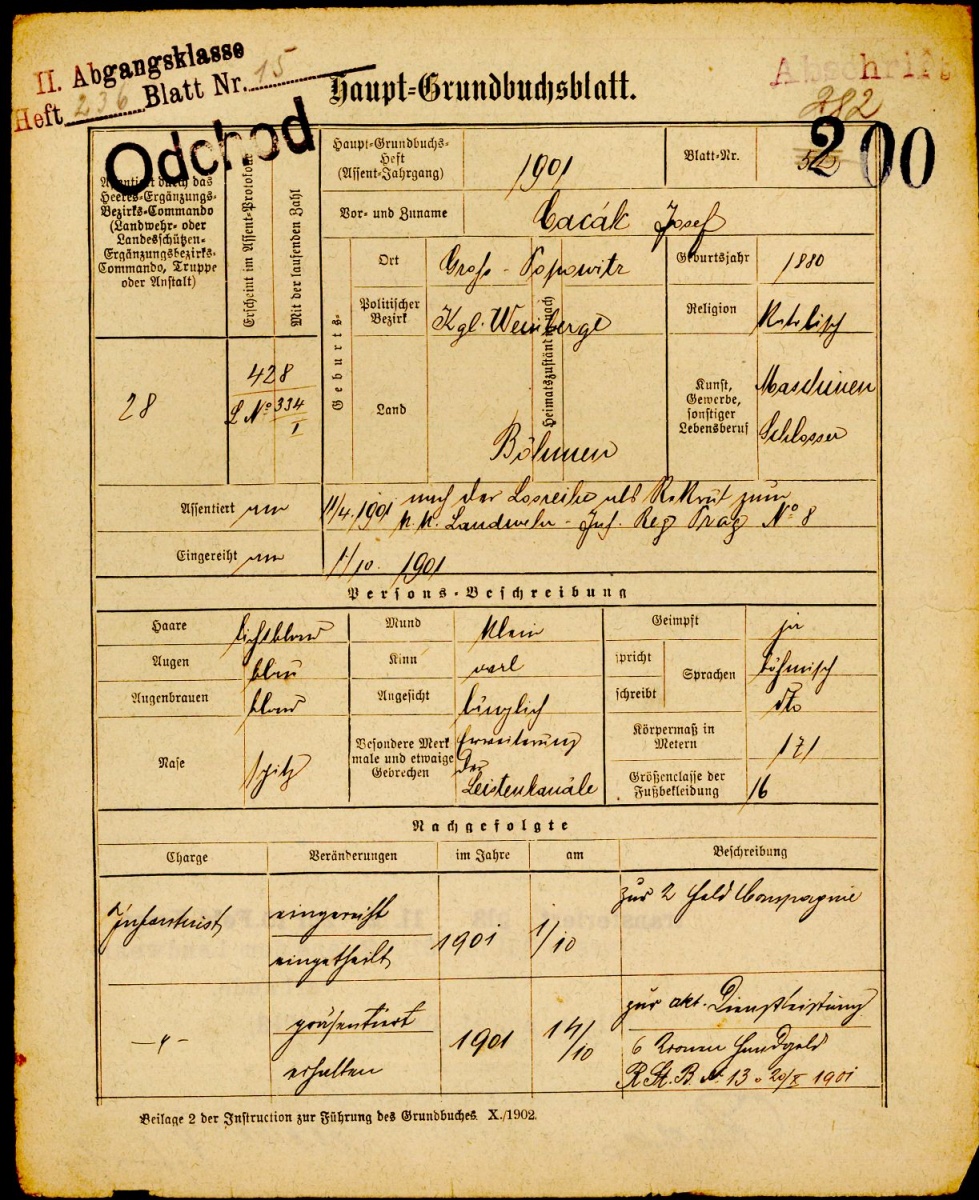 II. Abgangsklasse
Heft 236 Blatt Nr. 15
Haupt-Grundbuchsblatt.
Abschrift
282
200
Odchod
Assentiert durch das
Heeres-Ergänzungs-
Bezirks-Commando
(Landwehr- oder
Landesschützen-
Ergänzungsbezirks-
Commando, Truppe
oder Anstalt)
Erscheint im Assent-Protokolle
Mit der laufenden Zahl
Haupt-Grundbuchs-
Heft
(Assent-Jahrgang)
1901
Blatt-Nr.
Vor- und Zuname
Cacák Josef
Geburts-
Ort
Groß-Popowitz
Geburtsjahr
1880
Politischer
Bezirk
Kgl. Weinberge
Heimatszuständig nach
Religion
Katolisch
28
428
L Nº 334
I
Land
Böhmen
Kunst,
Gewerbe,
sonstiger
Lebensberuf
Maschinen
Schlosser
Assentiert am
11/4. 1901 nach der Losreihe als Rekrut zum
k.k. Landwehr-Inf. Reg Prag Nº 8
Eingereiht am
1/10 1901
Persons-Beschreibung
Haare
lichtblond
Mund
klein
Geimpft
ja
Augen
blau
Kinn
oval
spricht
schreibt
Sprachen
böhmisch
dto
Augenbrauen
blond
Angesicht
länglich
Nase
spitz
Besondere Merk
male und etwaige
Gebrechen
Erweiterung
der
Leistenkanäle
Körpermaß in
Metern
171
Größenclasse der
Fußbekleidung
16
Nachgefolgte
Charge
Veränderungen
im Jahre
am
Beschreibung
Infanterist
eingereiht
eingetheilt
1901
1/10
zur 2 Feld Compagnie
-"-
präsentiert
erhalten
1901
14/10
zur akt. Dienstleistung
6 Kronen Handgeld
R. St. B. Nº 13 v 20/X 1901
Beilage 2 der Instruction zur Führung des Grundbuches. X./1902.